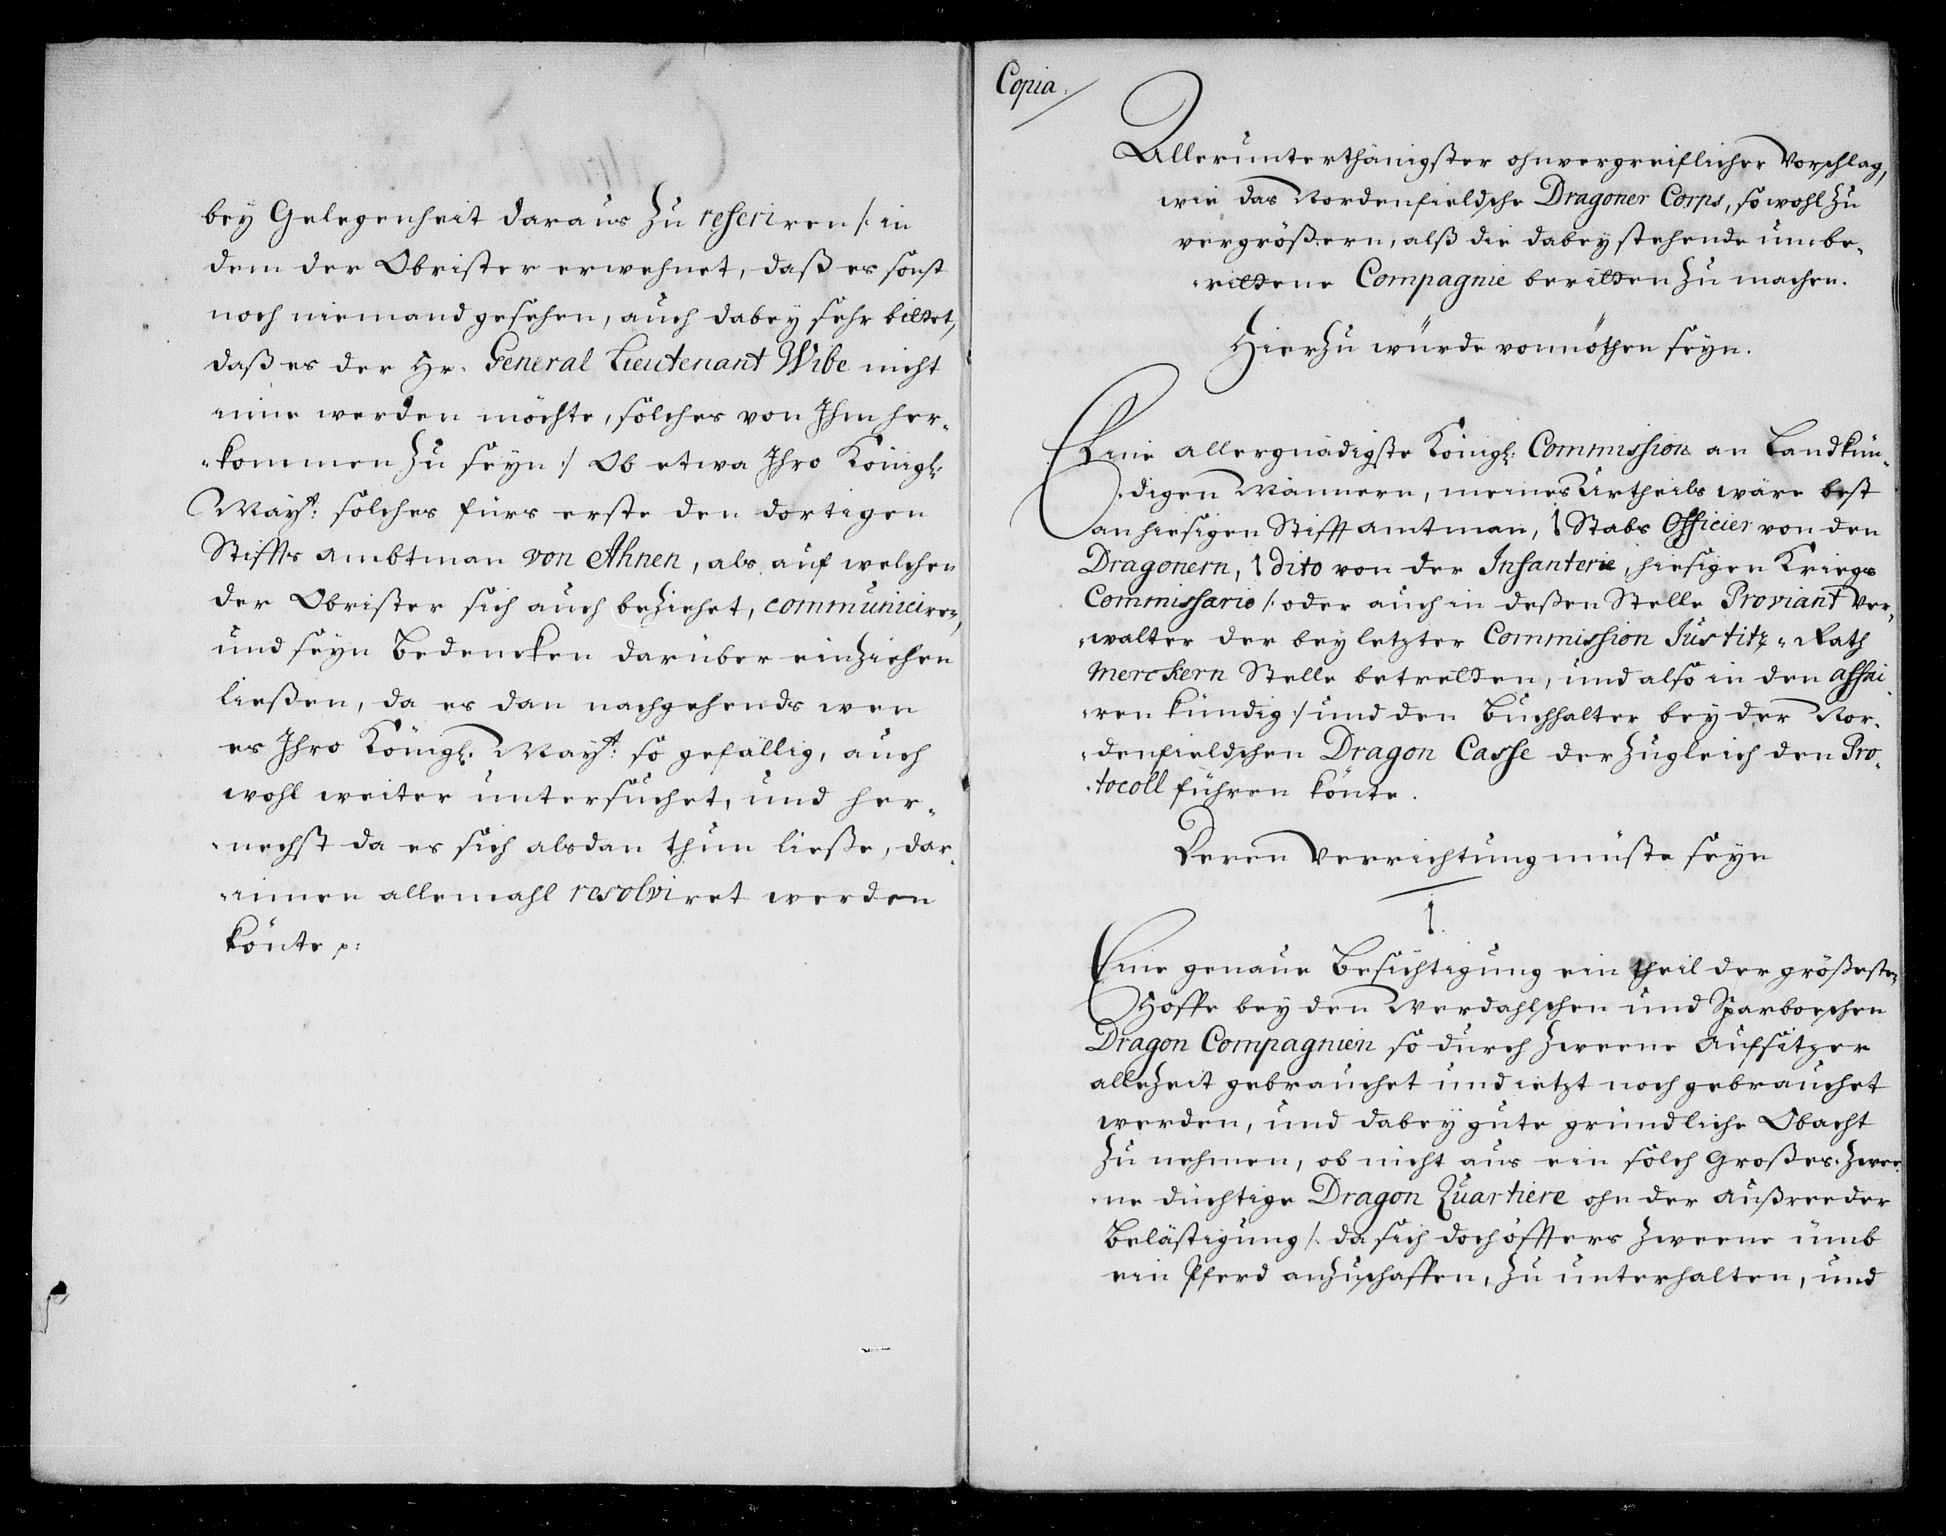 bey Gelegenheit daraus zu referiren /: in
dem der Obrister erwehnet, daß es sonst
noch niemand gesehen, auch dabey sehr bittet,
daß es der Hr. General Lieutenant Wibe nicht
inne werden möchte, solches von Ihm her-
-kommen zu seyn :/ Ob etwa Ihro Königl:
Mayt: solches fürs erste den dortigen
Stiffts ambtman von Ahnen, als auf welchen
der Obrister sich auch beziehet, communiciren,
und seyn Bedencken darüber einziehen
ließen, da es dan nachgehends wen
es Ihro Königl: Mayt: so gefällig, auch
wohl weiter untersuchet, und her-
-nechst da es sich alsdan thun ließe, dar-
-innen allemahl resolviret werden
könte p:
Copia.
Allerunterthänigster ohnvergreiflicher Vorschlag,
wie das Nordenfieldsche Dragoner Corps, so wohl zu
vergrößern, alß die dabey stehende unbe-
-rittene Compagnie beritten zu machen.
Hierzu würde vonnöthen seyn.
Eine allergnädigste Königl: Commission an Landkün-
-digen Männern, meines Urtheils wäre best
an hiesigen Stifft amtman, 1 Stabs Officier von den
Dragonern, 1 dito von der Infanterie, hiesigen Kriegs
Commissario /: oder auch in deßen Stelle Proviant Ver-
-walter der bey letzter Commission Justitz-Rath
Merckern Stelle betretten, und also in den affai-
-ren kündig :/ und den Buchhalter bey der Nor-
-denfieldschen Dragon Casse der zugleich den Pro-
-tocoll führen könte.
Deren Verrichtung müste seyn
1.
Eine genaue Besichtigung ein theil der größesten
Höffe bey den Werdahlschen und Sparboeschen
Dragon Compagnien so durch zweene Aufsitzer
allezeit gebrauchet und ietzt noch gebrauchet
werden, und dabey gute gründliche Obacht
zu nehmen, ob nicht aus ein solch Großes zwee-
-ne düchtige Dragon Quartiere ohn der Außreeder
Belästigung /: da sich doch öffters zweene ümb
ein Pferd anzuschaffen, zu unterhalten, und